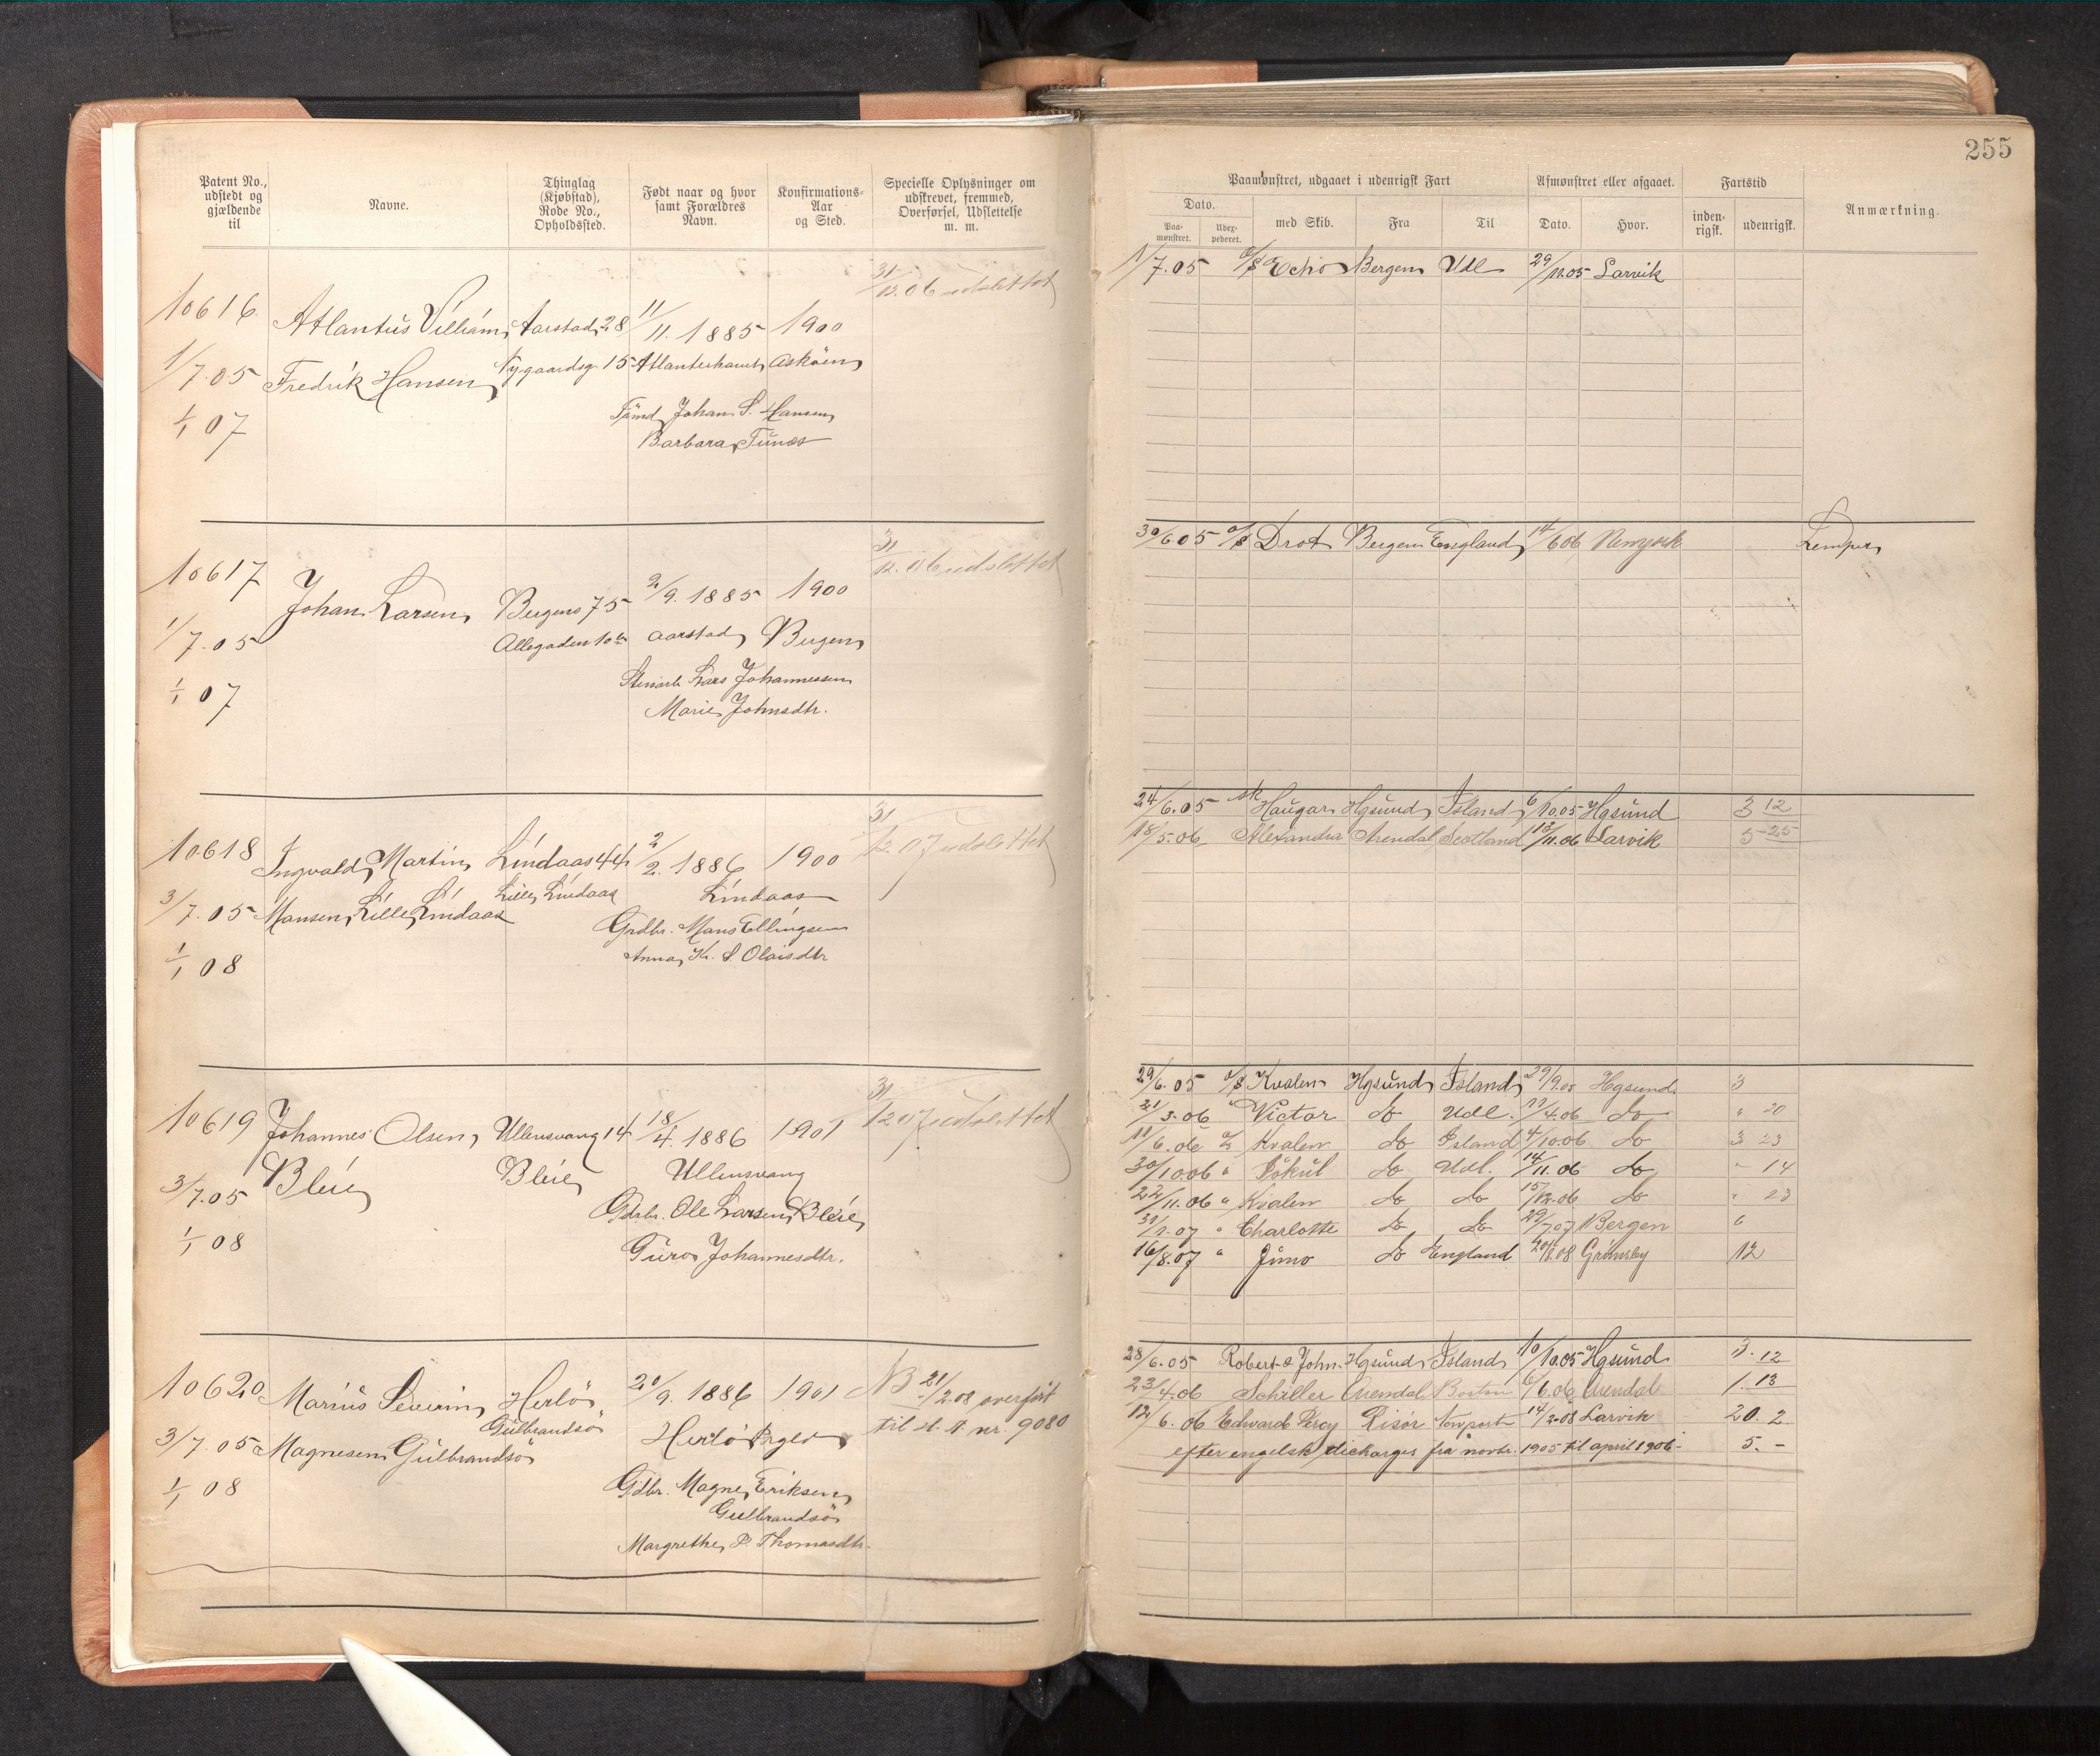 Patent No., udstedt og gjældende til
Navne.
Thinglag (Kjøbstad), Rode No., Opholdssted.
Født naar og hvor samt Forældres Navn.
Konfirmations-Aar og Sted.
Specielle Oplysninger om udskrevet, fremmed, Overførsel, Udslettelse m. m.
10616 Atlantus Villiam Aarstad 28 11/11. 1885 1900 31/12.06 udslettet
1/7.05 Fredrik Hansen Nygaardsg. 15 Atlanterhavet Askøen
1/1 07 Tømd. Johan S. Hansen
Barbara Tunæs
10617 Johan Larsen Bergens 75 2/9. 1885 1900 31/12.06 udslettet
1/7.05 Allegaden 10 Aarstad Bergen
1/1 07 Stenarb. Lars Johannessen
Marie Johnsdtr.
10618 Ingvald Martin Lindaas 44 2/2. 1886 1900 31/12.07 udslettet
3/7.05 Mansen Lille Lindaas Lille Lindaas Lindaas
Grdbr. Mans Ellingsen
1/1 08 Anna K. S. Olaisdtr
10619 Johannes Olsen Ullensvang 14 18/4. 1886 1901 31/12 07 udslettet
3/7.05 Bleie Bleie Ullensvang
Gdbr. Ole Larsen Bleie
1/1 08 Guro Johannesdtr.
10620 Marius Severin Herlö 20/9. 1886 1901 NB 21/2.08 overført
3/7.05 Magnesen Gulbrandsö Gulbrandsö Herlö til nr. 9080
1/1 08 Gdbr. Magne Eriksen
Gulbrandsö
Margrethe P. Thomasdtr.
255
Paamønstret, udgaaet i udenrigsk Fart
Afmønstret eller afgaaet.
Fartstid
Anmærkning.
Dato.
Paa-mønstret.
Udex-pederet.
med Skib.
Fra
Til
Dato.
Hvor.
inden-rigsk.
udenrigsk.
1/7.05 D/S Echo Bergen Udl 29/11.05 Larvik
30/6 05 D/S Drot Bergen England 14/6 06 Newyork Lemper
24/6.05 sk Haugar Hgsund Island 6/10.05 Hgsund 3 12
18/5.06 Alexandra Arendal Scotland 13/11.06 Larvik 5 25
29/6.05 D/S Kvalen Hgsund Island 29/9.05 Hgsund 3
21/3.06 " Victor do Udl. 11/4.06 do " 20
11/6.06 " Kvalen do Island 4/10.06 do 3 23
30/10.06 " Jökul do Udl. 14/11.06 do " 14
22/11.06 " Kvalen do do 15/12.06 do " 23
30/1.07 " Charlotte do do 29/7 07 Bergen 6
16/8.07 " Juno do England 20/8.08 Grimsby 12
28/6.05 Robert & John Hgsund Island 10/10.05 Hgsund 3. 12
23/4.06 Schiller Arendal Boston 6/6.06 Arendal 1. 13
12/6.06 Edward Percy Risör Newport 14/2.08 Larvik 20. 2
efter engelsk dicharges fra novbr. 1905 til april 1906 5. -